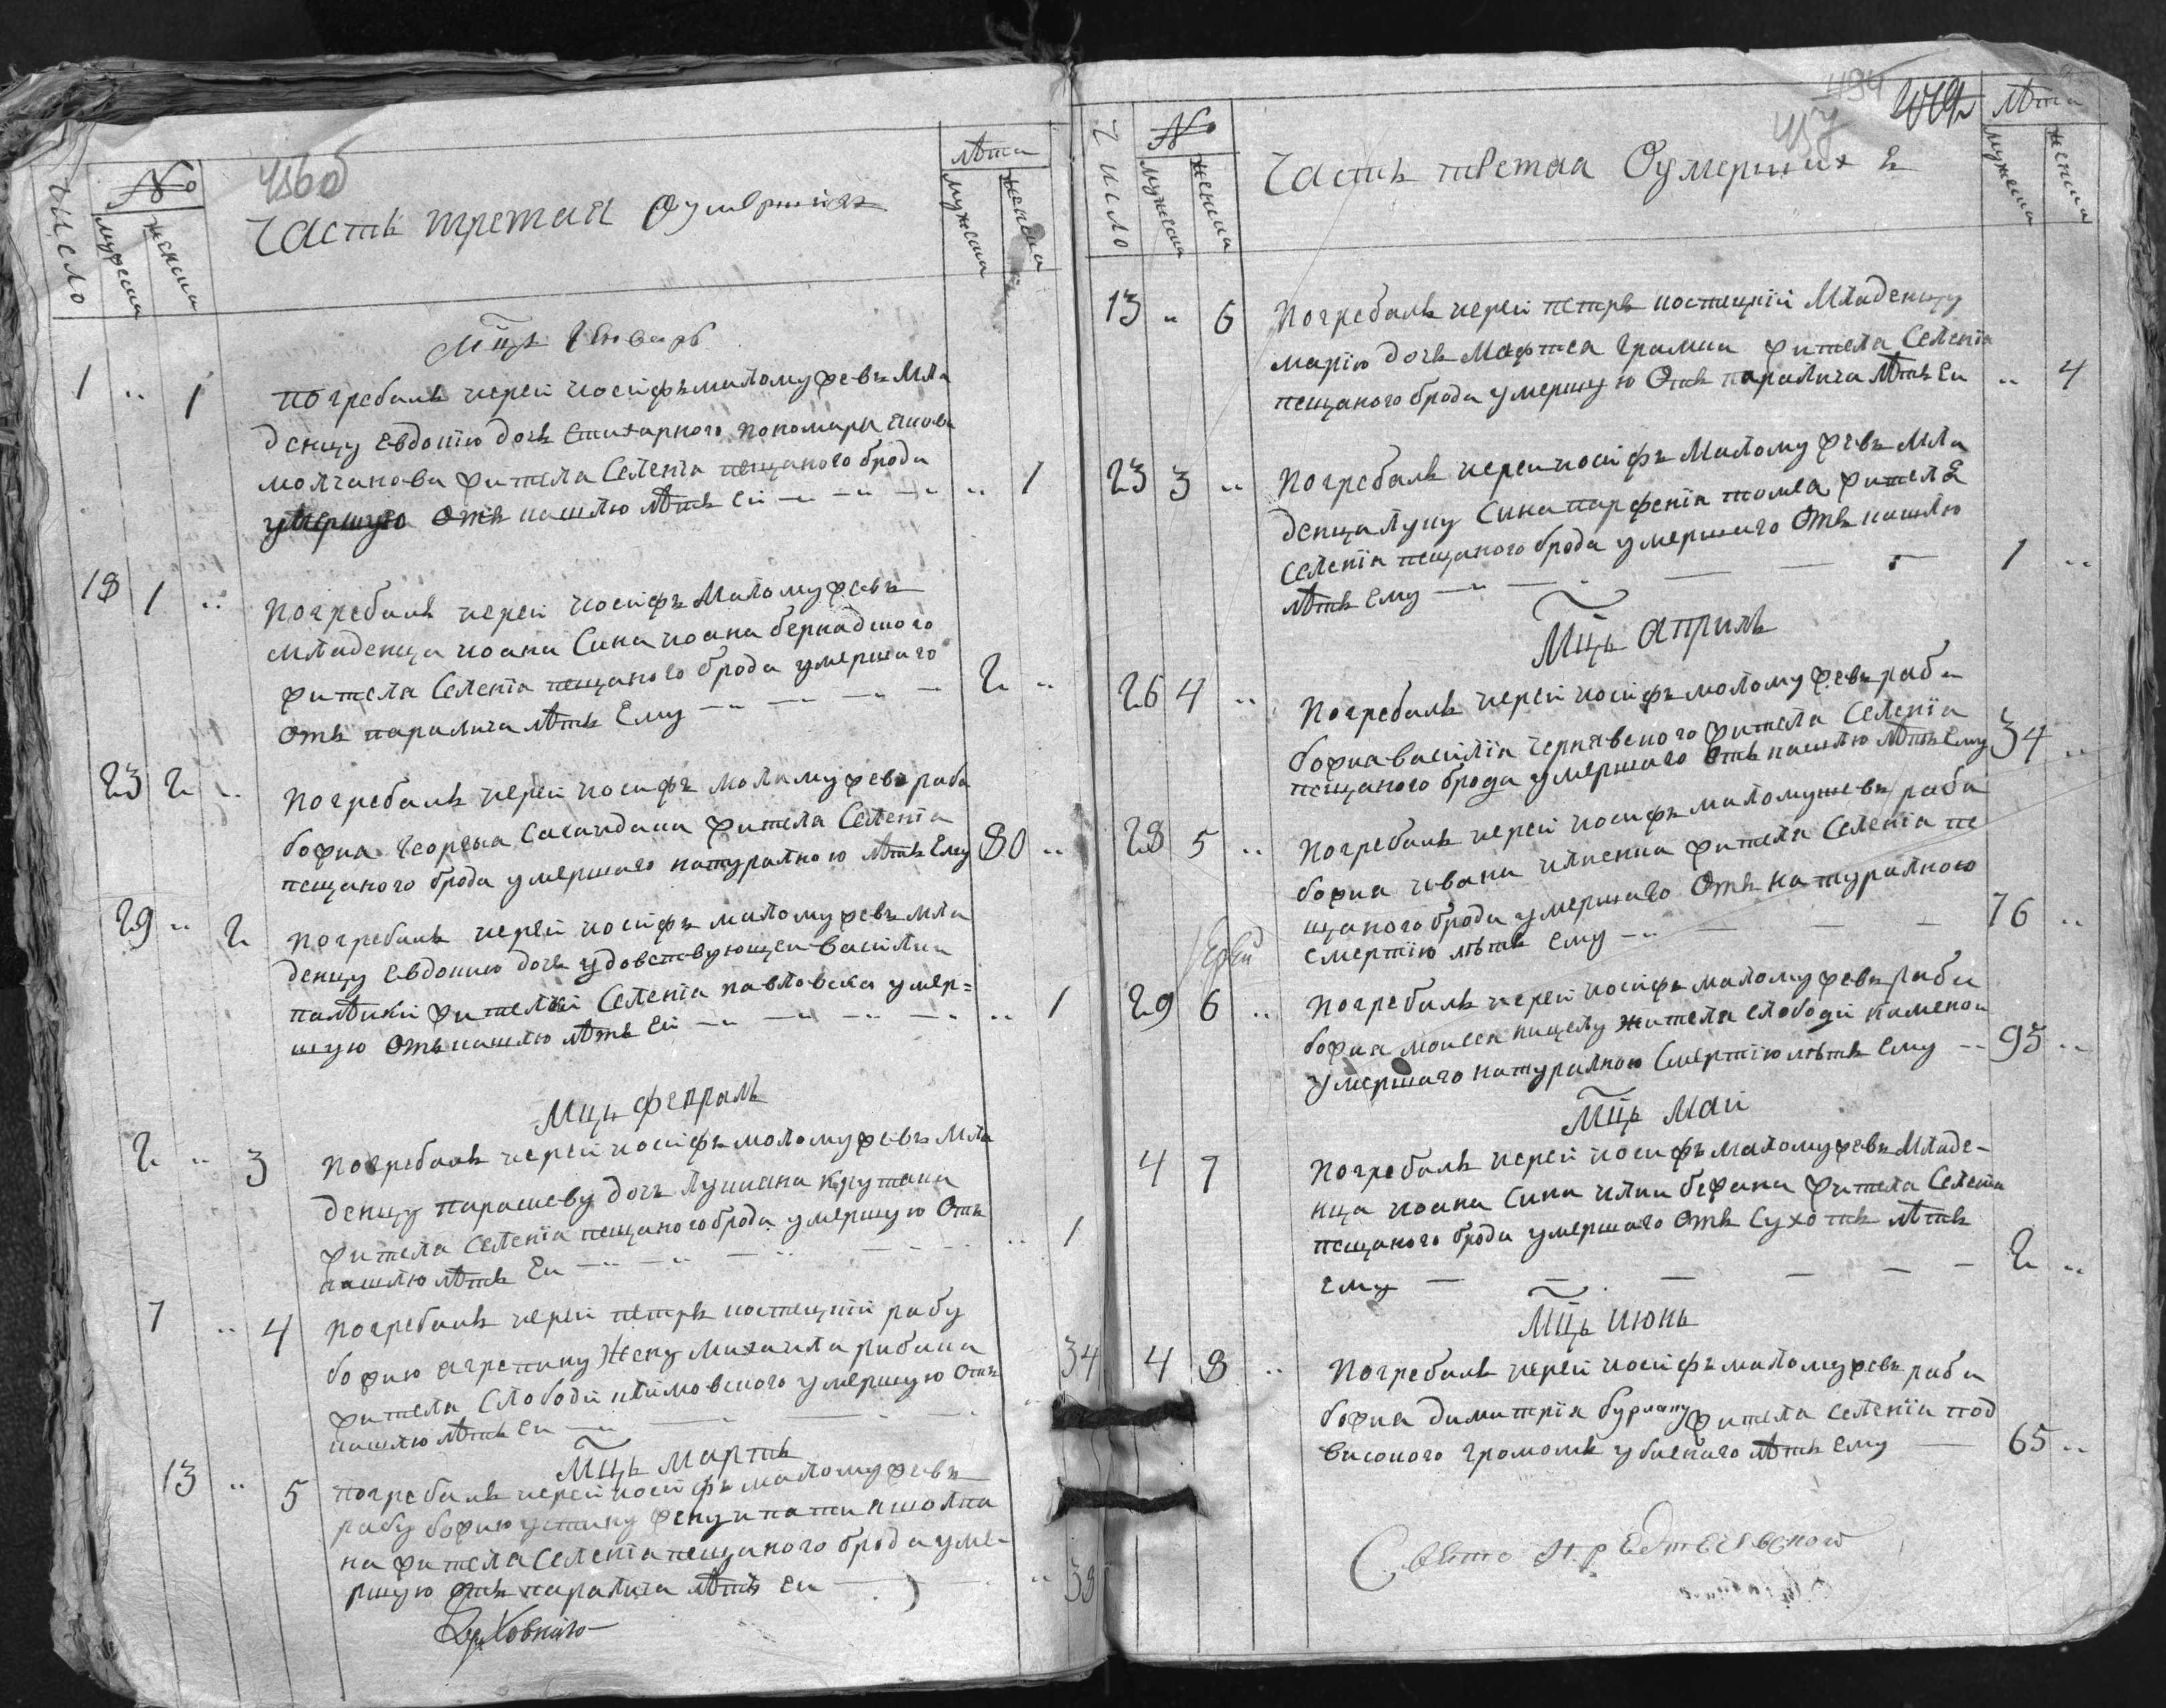 456об
Число
№
мужеска
женска
Часть третая Оумершихъ
лѣта
мужеска
женска
Мцъ Январь
1 .. 1 погребалъ иерей иосифъ маломужевъ мла
денцу евдокию дочь стихарного пономаря
молчанова жителя Селения пещаного брода
умершую Отъ кашлю лѣтъ ей .. 1
18 1 .. Погребалъ иерей иосифъ Маломужевъ
младенца иоана Сина иоана бернадского
жителя Селения пещаного брода умершаго
Отъ паралича лѣтъ Ему 2 ..
23 2 .. Погребалъ иерей иосифъ маломужевъ раба
божиа Георгиа жителя Селения
пещаного брода умершаго натуралною лѣтъ Ему 80 ..
29 .. 2 Погребалъ иерей иосифъ маломужевъ мла
денцу Евдокию дочь удовствующей василии
жителки Селения павловска умер=
шую Отъ кашлю лѣтъ ей .. 1
Мцъ февраль
2 .. 3 Погребалъ иерей иосифъ моломужевъ мла
денцу парасковеу дочь лукиана крутана
жителя Селения пещаного брода умершую Отъ
кашлю лѣтъ Ей .. 1
7 .. 4 Погребалъ иерей петръ костецкий рабу
божию агрепину Жену михаила
жителя Слободи умершую Отъ
кашлю лѣтъ ей .. 34
Мцъ Мартъ
13 .. 5 погребалъ иерей иосифъ маломужевъ
рабу божию устину жену игнати
на жителя Селения пещаного брода уме-
ршую Отъ паралича лѣтъ ей .. 38
Духовнаго
494
457
Число
№
мужеска
женска
Часть третая Оумершихъ
Лѣта
мужеска
женска
13 .. 6 Погребалъ иерей петръ костецкий Младенцу
марию дочь Мафтея жителя Селения
пещаного брода умершую Отъ паралича лѣтъ Ей .. 4
23 3 .. Погребалъ иерей иосифъ Маломужевъ Мла
денца луку Сина парфения жителя
Селения пещаного брода умершаго Отъ кашлю
лѣтъ Ему 1 ..
Мцъ Априль
26 4 .. Погребалъ иерей иосифъ моломужевъ раба
божиа василия чернявского жителя Селения
пещаного брода умершаго Отъ кашлю лѣтъ Ему 34 ..
28 5 .. Погребалъ иерей иосифъ маломужевъ раба
божиа ивана жителя Селения пе
щаного брода умершаго Отъ натуралною
смертию лѣтъ ему 76 ..
Іерей
29 6 .. Погребалъ иерей иосифъ маломужевъ раба
божиа моисея жителя слободи каменои
умершаго натуралною Смертию лѣтъ Ему 95 ..
Мцъ Маи
4 7 Погребалъ иерей иосифъ маломужевъ Младе-
нца иоана Сина жителя Селения
пещаного брода умершаго Отъ Сухотъ лѣтъ
ему 2 ..
Мцъ Июнь
4 8 .. Погребалъ иерей иосифъ маломужевъ раба
божиа димитрия жителя селения под
високого громомъ убиенаго лѣтъ Ему 65 ..